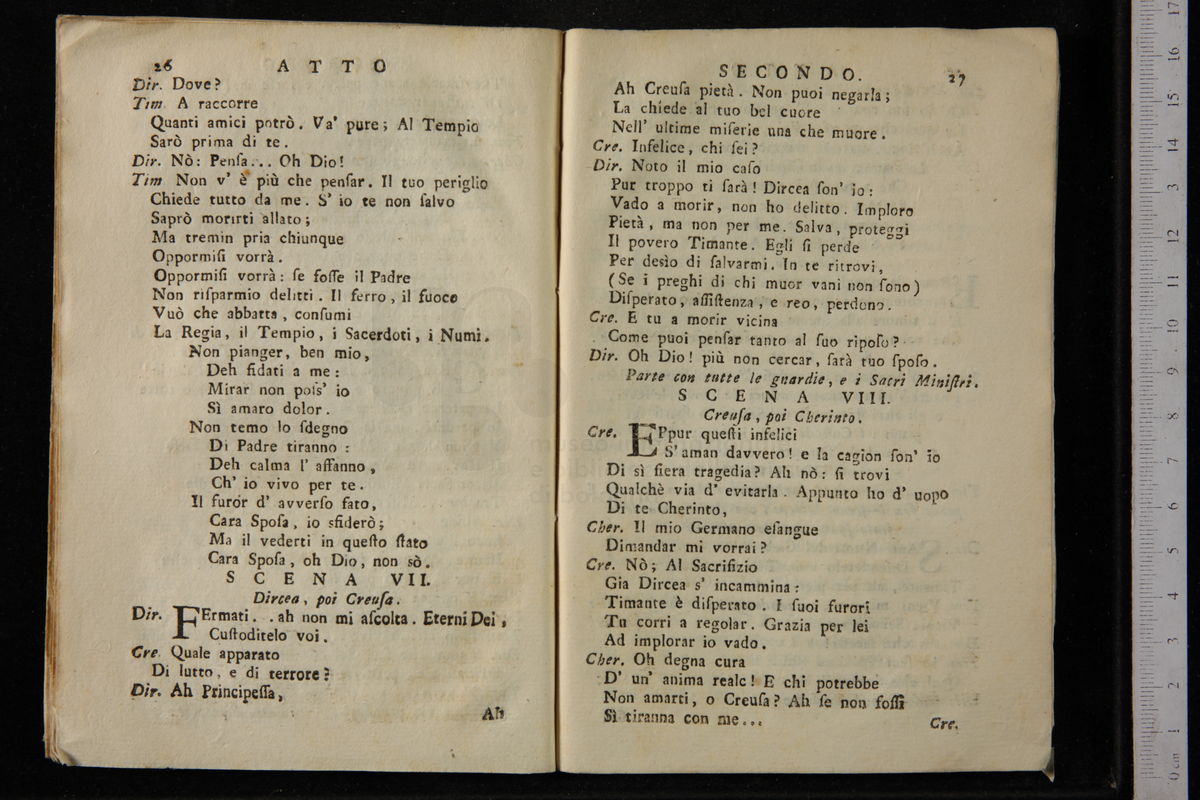 26 ATTO
Dir. Dove?
Tim. A raccorre
Quanti amici potrò. Va' pure; Al Tempio
Sarò prima di te.
Dir. Nò: Penſa... Oh Dio!
Tim Non v' è più che penſar. Il tuo periglio
Chiede tutto da me. S' io te non ſalvo
Saprò morirti allato;
Ma tremin pria chiunque
Oppormiſi vorrà.
Oppormiſi vorrà: ſe foſſe il Padre
Non riſparmio delitti. Il ferro, il fuoco
Vuò che abbatta, conſumi
La Regia, il Tempio, i Sacerdoti, i Numi.
Non pianger, ben mio,
Deh fidati a me:
Mirar non poſs' io
Sì amaro dolor.
Non temo lo ſdegno
Di Padre tiranno:
Deh calma l' affanno,
Ch' io vivo per te.
Il furor d' avverſo fato,
Cara Spoſa, io sfiderò;
Ma il vederti in queſto ſtato
Cara Spoſa, oh Dio, non sò.
SCENA VII.
Dircea, poi Creuſa.
Dir. FErmati. . ah non mi aſcolta. Eterni Dei,
Cuſtoditelo voi.
Cre. Quale apparato
Di lutto, e di terrore?
Dir. Ah Principeſſa,
Ah
SECONDO. 27
Ah Creuſa pietà. Non puoi negarla;
La chiede al tuo bel cuore
Nell' ultime miſerie una che muore.
Cre. Infelice, chi ſei?
Dir. Noto il mio caſo
Pur troppo ti ſarà! Dircea ſon' io:
Vado a morir, non ho delitto. Imploro
Pietà, ma non per me. Salva, proteggi
Il povero Timante. Egli ſi perde
Per desìo di ſalvarmi. In te ritrovi,
(Se i preghi di chi muor vani non ſono)
Diſperato, aſſiſtenza, e reo, perdono.
Cre. E tu a morir vicina
Come puoi penſar tanto al ſuo ripoſo?
Dir. Oh Dio! più non cercar, ſarà tuo ſpoſo.
Parte con tutte le guardie, e i Sacri Miniſtri.
SCENA VIII.
Creuſa, poi Cherinto.
Cre. EPpur queſti infelici
S' aman davvero! e la cagion ſon' io
Di sì fiera tragedia? Ah nò: ſi trovi
Qualchè via d' evitarla. Appunto ho d' uopo
Di te Cherinto,
Cher. Il mio Germano eſangue
Dimandar mi vorrai?
Cre. Nò; Al Sacrifizio
Gia Dircea s' incammina:
Timante è diſperato. I ſuoi furori
Tu corri a regolar. Grazia per lei
Ad implorar io vado.
Cher. Oh degna cura
D' un' anima reale! E chi potrebbe
Non amarti, o Creuſa? Ah ſe non foſſi
Sì tiranna con me...
Cre.